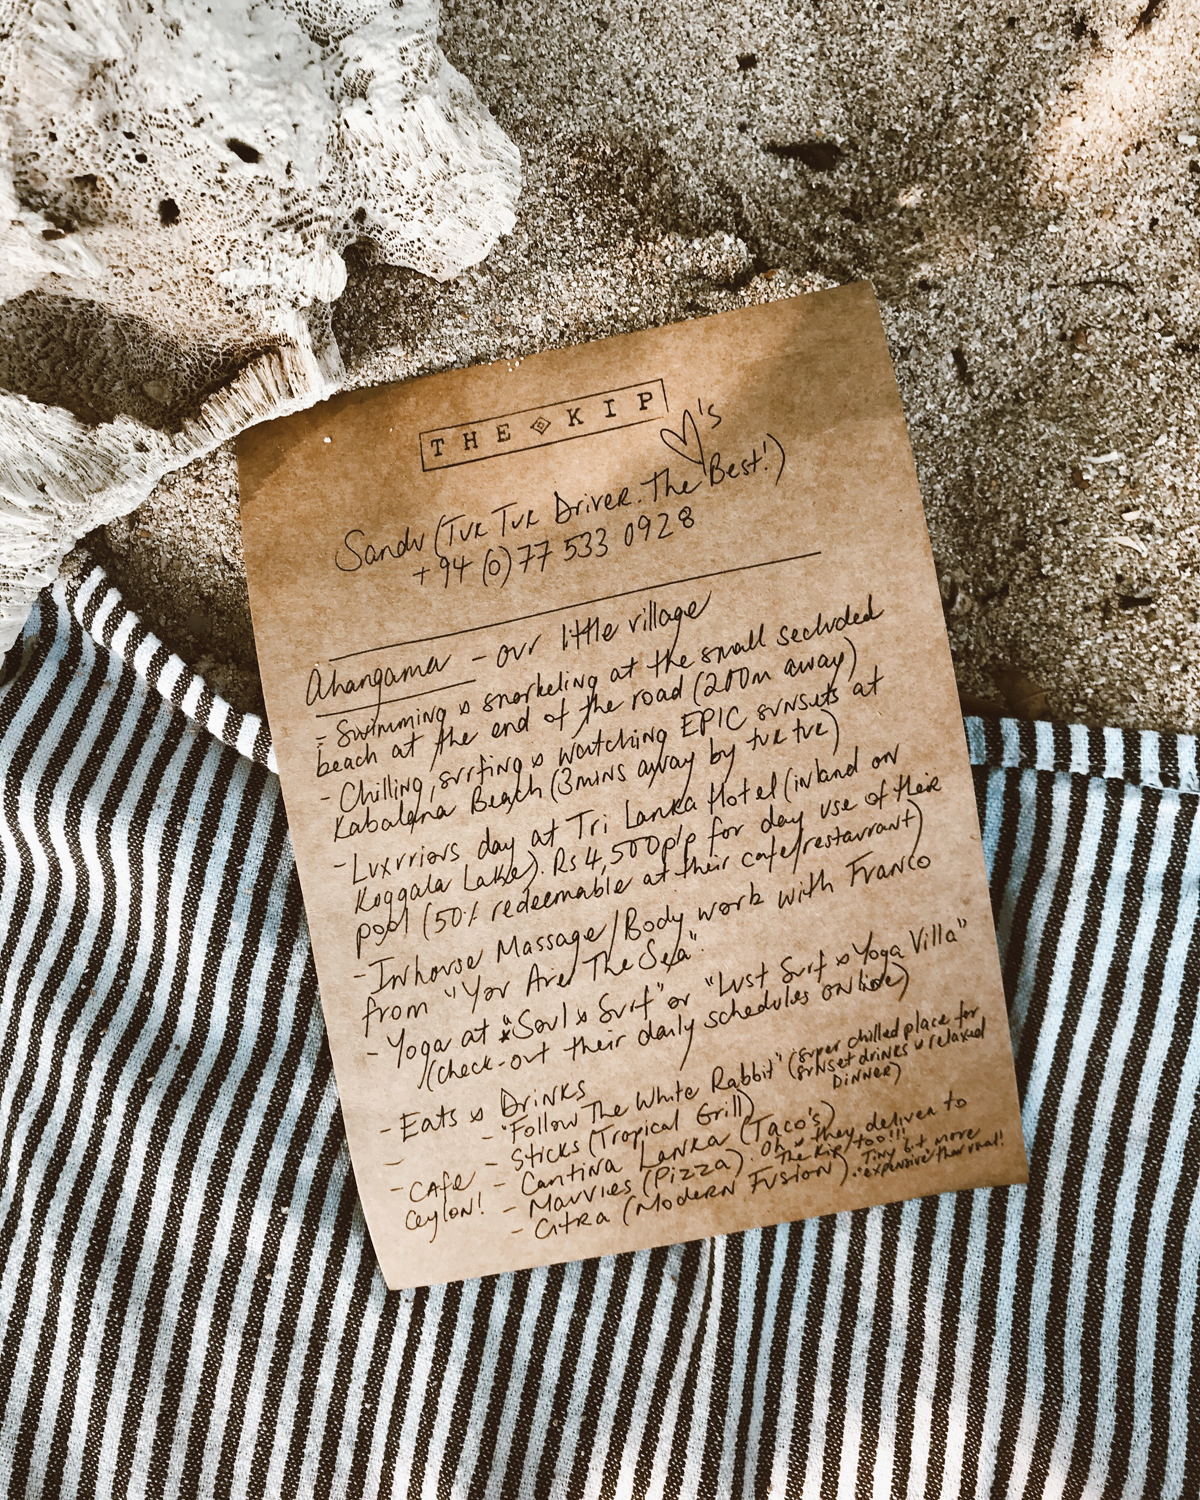 THE KIP
♡'s
Sandu (Tuk Tuk Driver. The Best!)
+94 (0)77 533 0928
Ahangama - our little village
- Swimming & snorkeling at the small secluded
beach at the end of the road (200m away)
- Chilling, surfing & watching EPIC sunsets at
Kabalana Beach (3mins away by tuk tuk)
- Luxurious day at Tri Lanka Hotel (inland on
Koggala Lake). Rs 4,500p/p for day use of their
pool (50% redeemable at their cafe/restaurant)
- Inhouse Massage/Body work with Franco
from "You Are The Sea".
- Yoga at "Soul & Surf" or "Lust Surf & Yoga Villa"
(check-out their daily schedules online)
- Eats & Drinks
- "Follow The White Rabbit" (super chilled place for
sunset drinks & relaxed
Dinner)
- Sticks (Tropical Grill)
- Cantina Lanka (Taco's)
- Mauvies (Pizza). Oh & they deliver to
The Kip too!!!
- Citra (Modern Fusion). Tiny bit more
"expensive" than usual!
- Cafe
Ceylon!